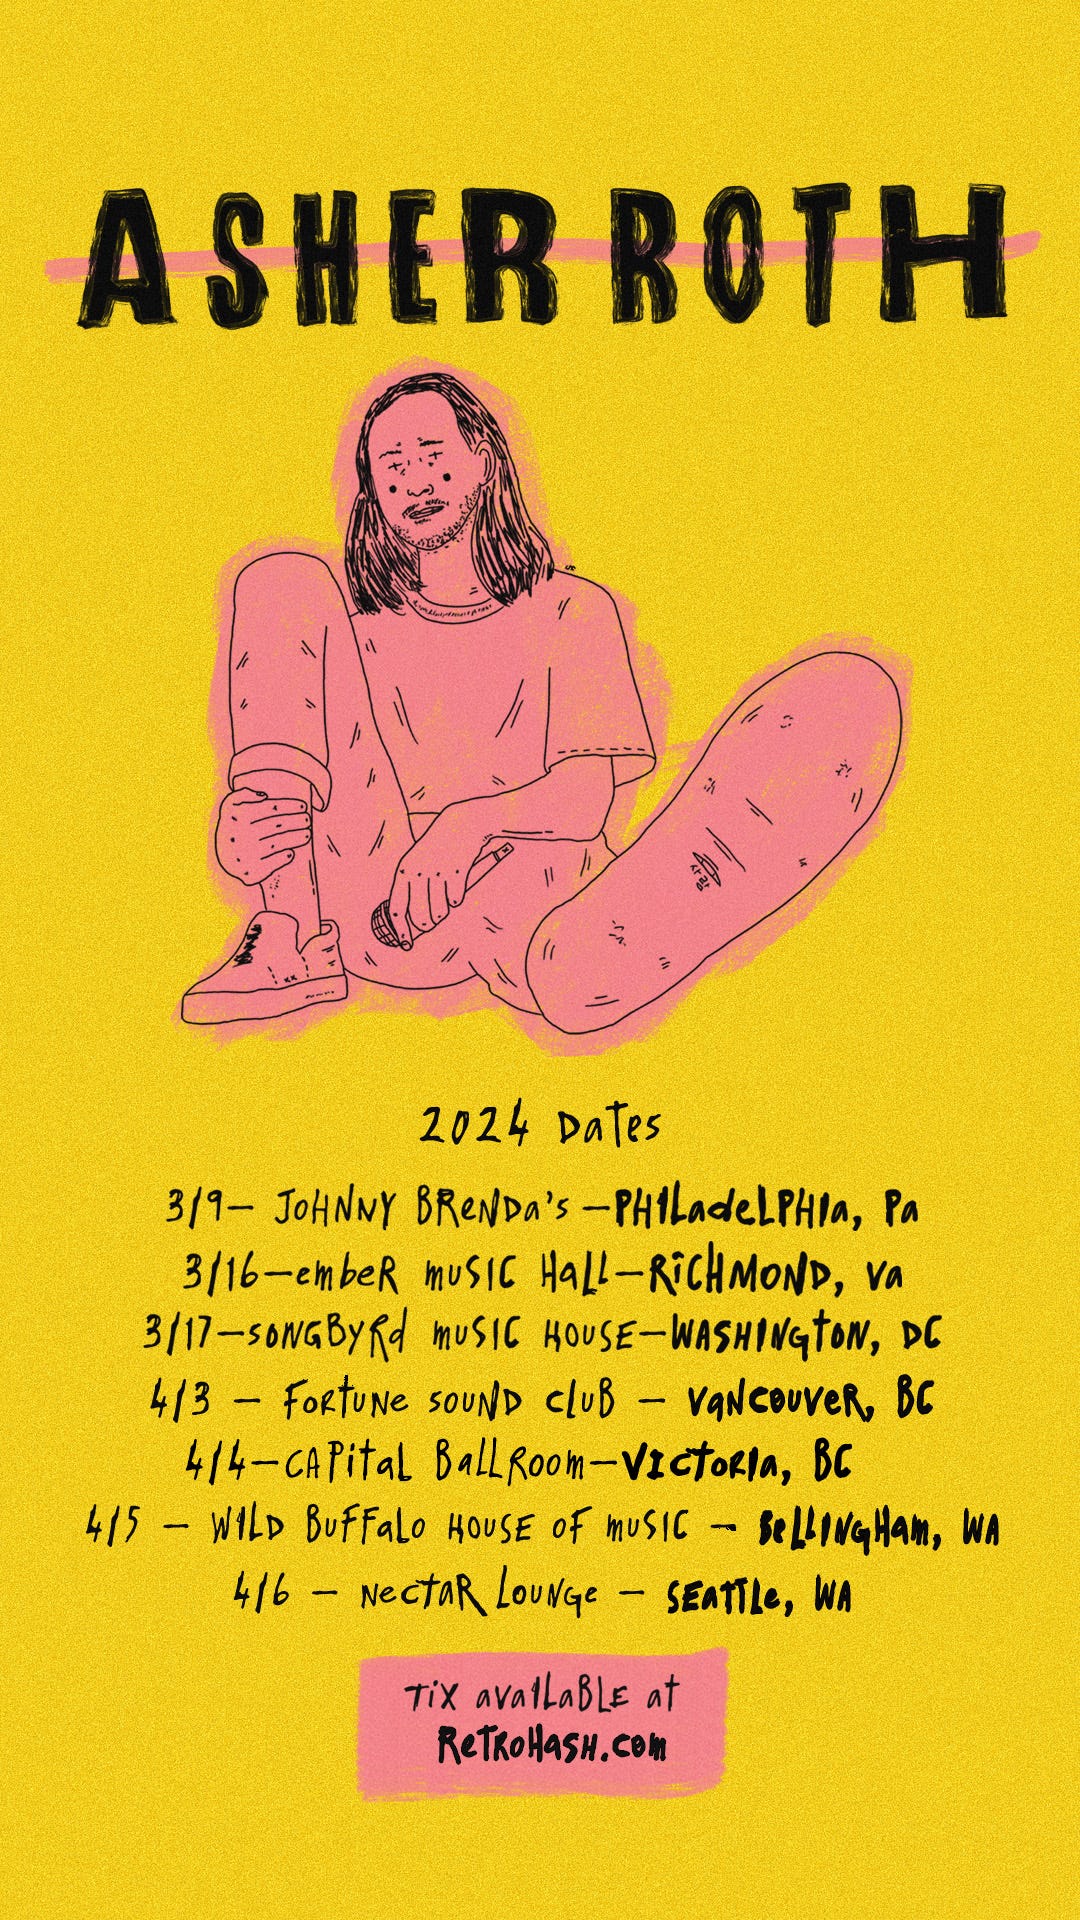 ASHER ROTH
사랑
2024 Dates
3/9— JOHNNY BRENDa's —PHILadeLPHIa, Pa
3/16—embeR muSIC HaLL—RiCHMOND, Va
3/17—SONGBYRd muSIC HOUSE—WASHINgtON, DC
4/3 — FORtUNe SOUND CLUB — VaNCOUVeR, BC
4/4—CAPitaL BaLLROOm—VICtORIa, BC
4/5 — WILD BUFFaLO HOUSE OF muSIC — BeLLINGHam, WA
4/6 — NeCtaR LOUNGe — SEATTLe, WA
TiX avaILaBLE at
RetROHaSH.COm